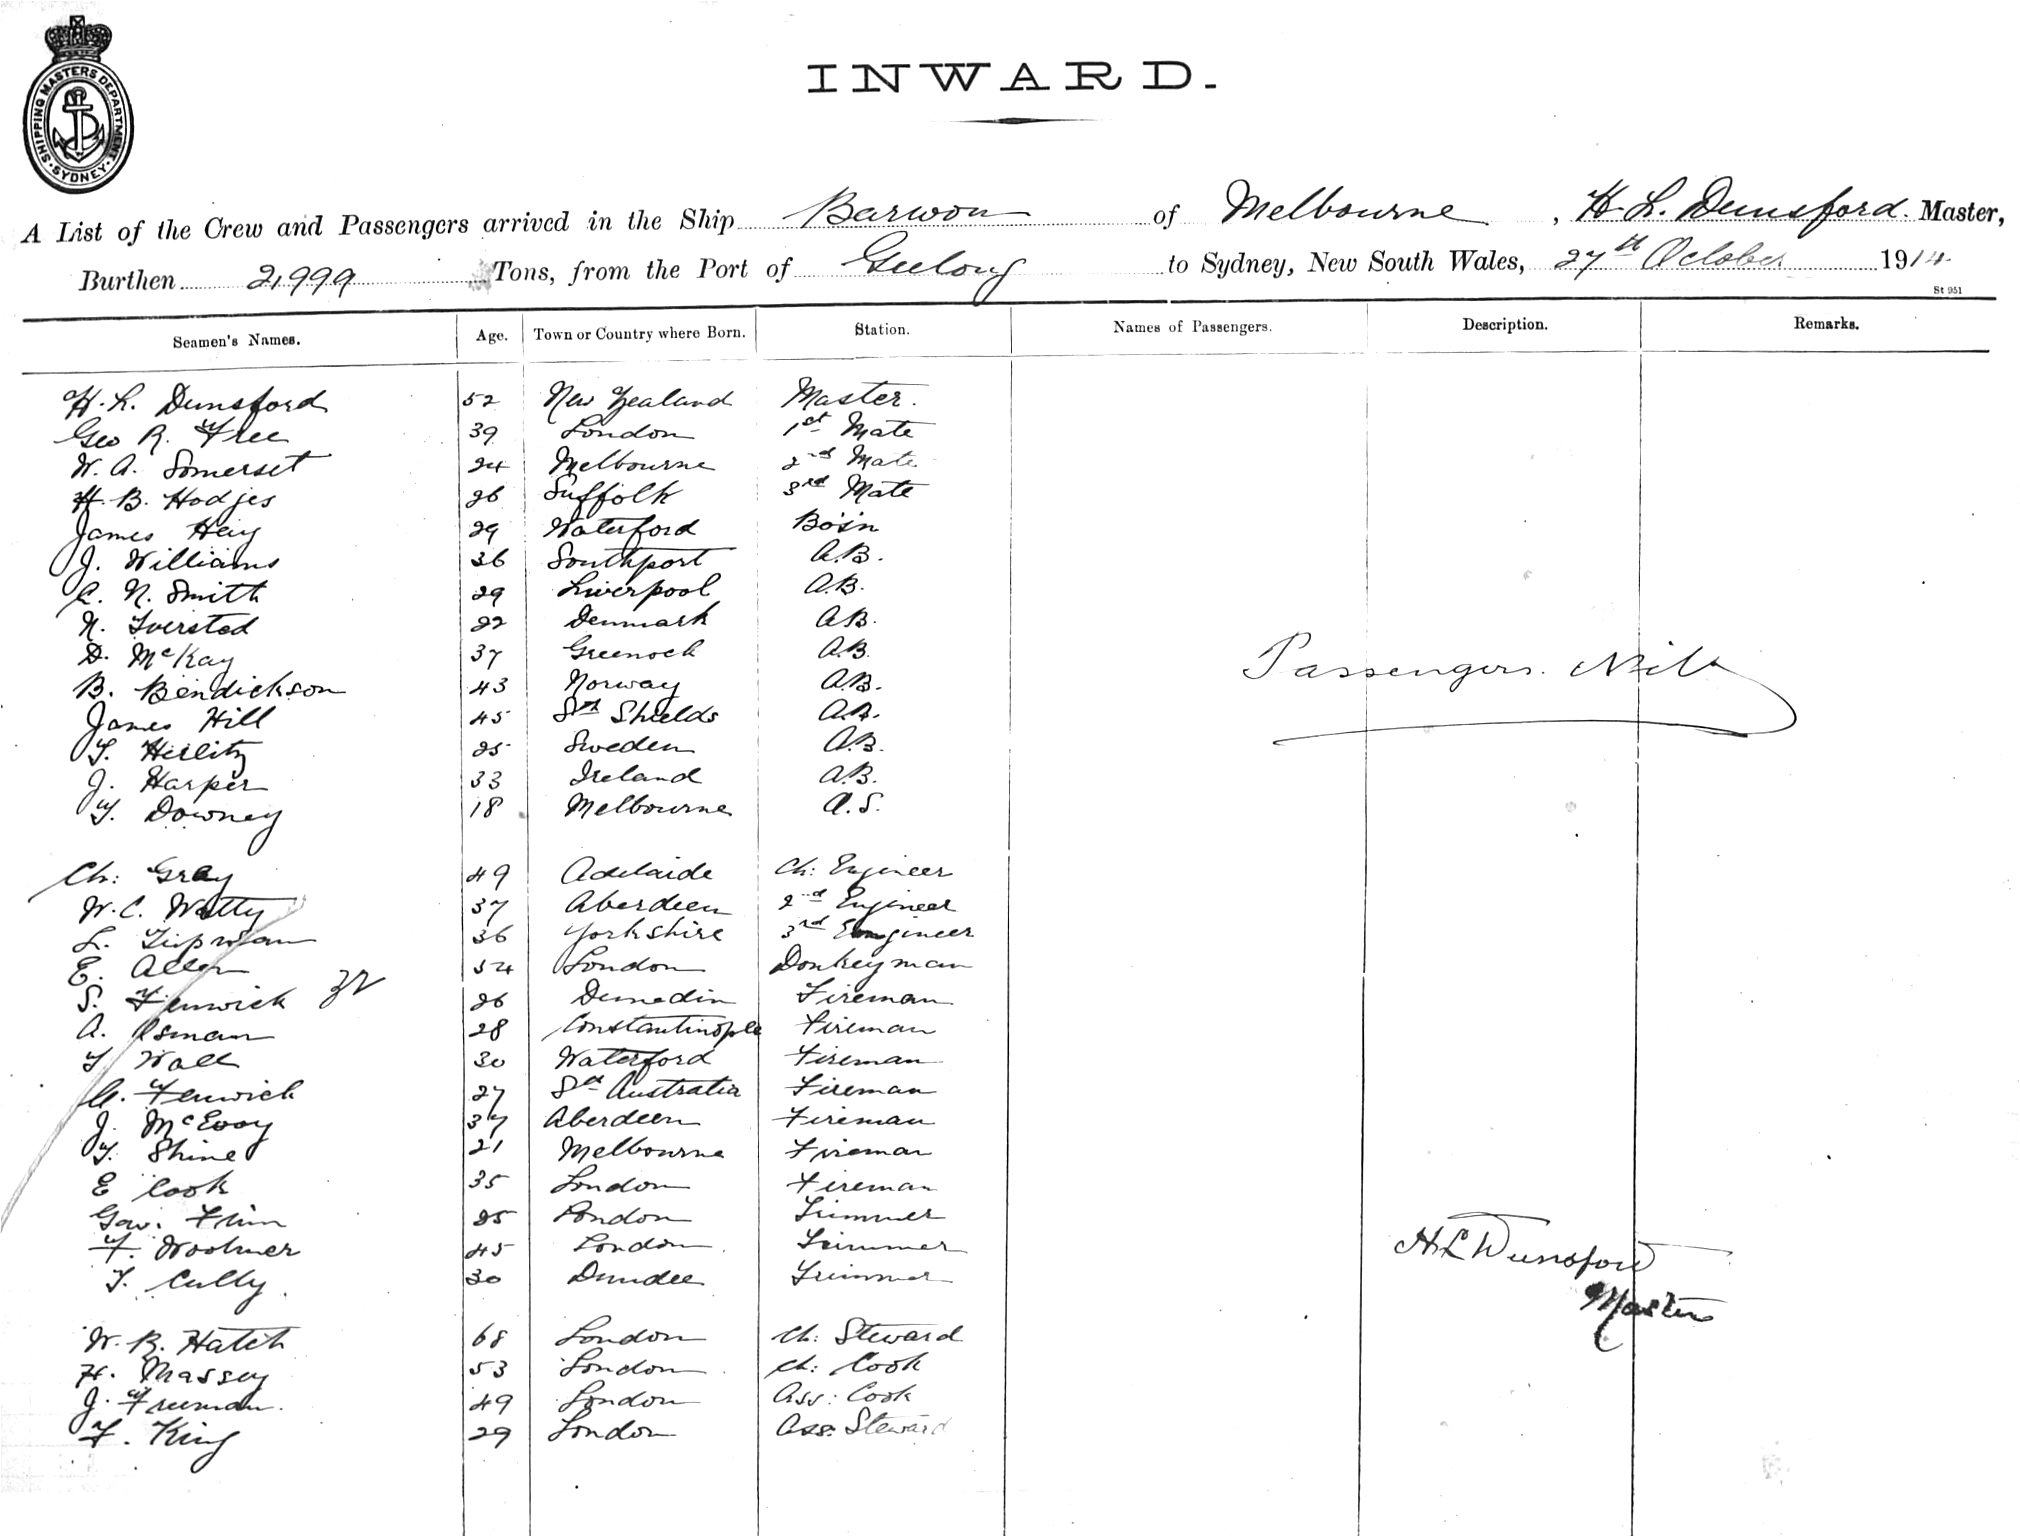 SHIPPING MASTERS DEPARTMENT SYDNEY
INWARD.
A List of the Crew and Passengers arrived in the Ship Barwon of Melbourne, H. L. Dunsford. Master,
Burthen 2,999 Tons, from the Port of Geelong to Sydney, New South Wales, 27th October 1914
St 951
Seamen's Names. Age. Town or Country where Born. Station. Names of Passengers. Description. Remarks.
H. L. Dunsford 52 New Zealand Master.
Geo R. Free 39 London 1st Mate
W. A. Somerset 24 Melbourne 2nd Mate
H. B. Hodjes 26 Suffolk 3rd Mate
James Heiy 29 Waterford Bo's'n
J. Williams 36 Southport A.B.
C. N. Smith 29 Liverpool A.B.
N. Iversted 22 Denmark A.B.
D. McKay 37 Greenock A.B.
B. Bendickson 43 Norway A.B.
James Hill 45 Sth Shields A.B.
T. Herlitz 25 Sweden A.B.
J. Harper 33 Ireland A.B.
T. Downey 18 Melbourne O.S.
Passengers. Nil
Ch: Gray 49 Adelaide Ch: Engineer
W. C. Watty 37 Aberdeen 2nd Engineer
L. 36 Yorkshire 3rd Engineer
E. Allen 54 London Donkeyman
S. Fenwick 32 26 Dunedin Fireman
A. Osman 28 Constantinople Fireman
T Wall 30 Waterford Fireman
G. Fenwick 27 Sth Australia Fireman
J. McEvoy 37 Aberdeen Fireman
T. Shine 21 Melbourne Fireman
E Cook 35 London Fireman
Geo. Flinn 25 London Trimmer
F. Woolmer 45 London Trimmer
T. Cully 30 Dundee Trimmer
H L Dunsford
Master
W. B. Hatch 68 London Ch: Steward
H. Massey 53 London Ch: Cook
J. Freeman. 49 London Ass: Cook
F. King 29 London Ass: Steward